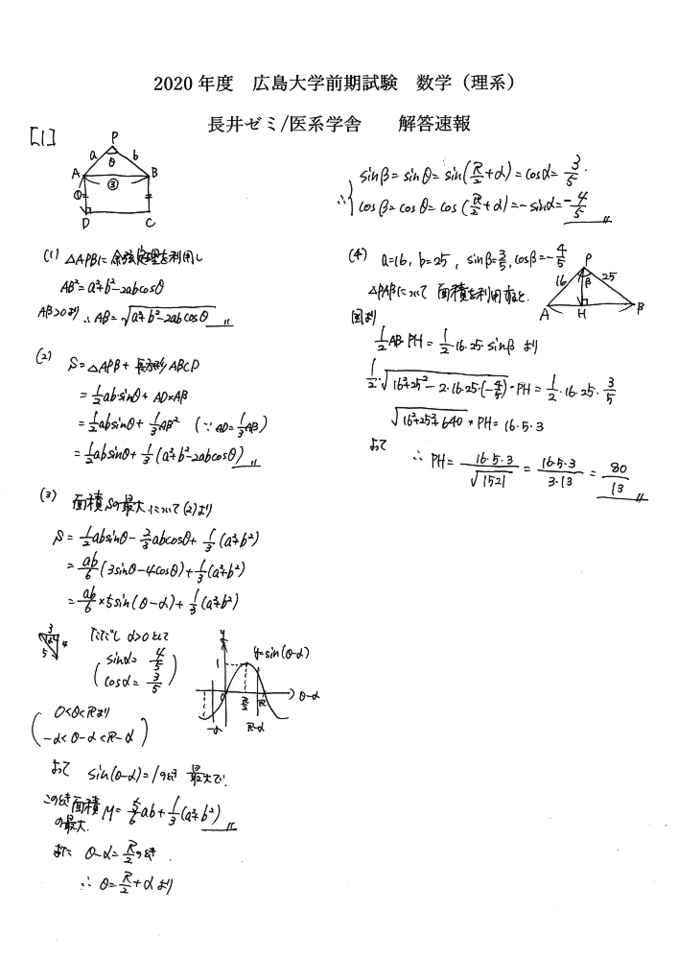 2020 年度 広島大学前期試験 数学（理系）
長井ゼミ/医系学舎 解答速報
[1]
P
a θ b
A ③ B
①
D C
(1) △APBに余弦定理を利用し
AB²=a²+b²-2abcosθ
AB>0より ∴ AB=√(a²+b²-2abcosθ)
(2) S=△APB+長方形ABCD
=1/2 absinθ+AD×AB
=1/2 absinθ+1/3 AB² (∵AD=1/3 AB)
=1/2 absinθ+1/3(a²+b²-2abcosθ)
(3) 面積Sの最大について(2)より
S=1/2 absinθ-2/3 abcosθ+1/3(a²+b²)
=ab/6(3sinθ-4cosθ)+1/3(a²+b²)
=ab/6×5sin(θ-α)+1/3(a²+b²)
3
4
5
ただし α>0として
(sinα=4/5
cosα=3/5)
y
y=sin(θ-α)
1
0 π/2 π θ-α
-α π-α
(0<θ<πより
-α<θ-α<π-α)
よって sin(θ-α)=1のとき 最大で、
このとき面積の最大 M=5/6 ab+1/3(a²+b²)
また θ-α=π/2のとき
∴ θ=π/2+αより
∴{sinβ=sinθ=sin(π/2+α)=cosα=3/5
cosβ=cosθ=cos(π/2+α)=-sinα=-4/5
(4) a=16, b=25, sinβ=3/5, cosβ=-4/5
P
16 β 25
A H B
△PABについて 面積を利用すると、
図より
1/2 AB・PH=1/2・16・25・sinβ より
1/2・√(16²+25²-2・16・25・(-4/5))・PH=1/2・16・25・3/5
√(16²+25²+640)×PH=16・5・3
よって
∴ PH=16・5・3/√1521=16・5・3/3・13=80/13